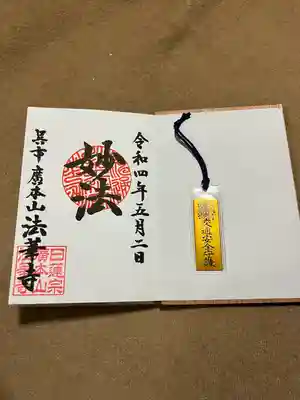 令和四年五月二日
妙法
呉市廣本山法華寺
日蓮宗
廣本山
法華寺
交通安全守護